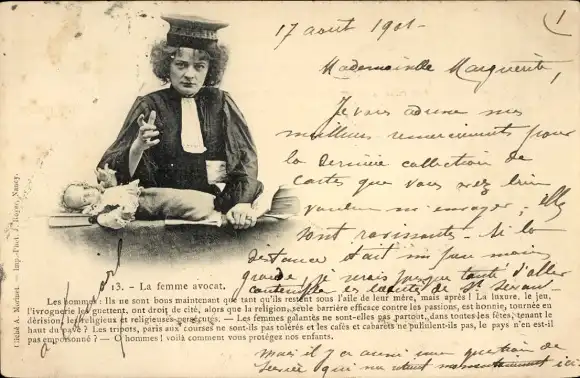 1
17 août 1901 -
Mademoiselle Marguerite,
Je vous adresse mes
meilleurs remerciements pour
la dernière collection de
cartes que vous avez bien
voulu m'envoyer, elles
sont ravissantes. Si la
distance était un peu moins
grande, je serais presque tenté d'aller
contempler les beautés de St
13. - La femme avocat.
Les hommes : Ils ne sont bous maintenant que tant qu'ils restent sous l'aile de leur mère, mais après ! La luxure, le jeu,
l'ivrognerie les guettent, ont droit de cité, alors que la religion, seule barrière efficace contre les passions, est honnie, tournée en
dérision, les religieux et religieuses persécutés. — Les femmes galantes ne sont-elles pas partout, dans toutes les fêtes, tenant le
haut du pavé ? Les tripots, paris aux courses ne sont-ils pas tolérés et les cafés et cabarets ne pullulent-ils pas, le pays n'en est-il
pas empoisonné ? — O hommes ! voilà comment vous protégez nos enfants.
mais il y a aussi une question de
service qui me ici
Cliché A. Marinet. — Imp.-Phot. J. Royer, Nancy.